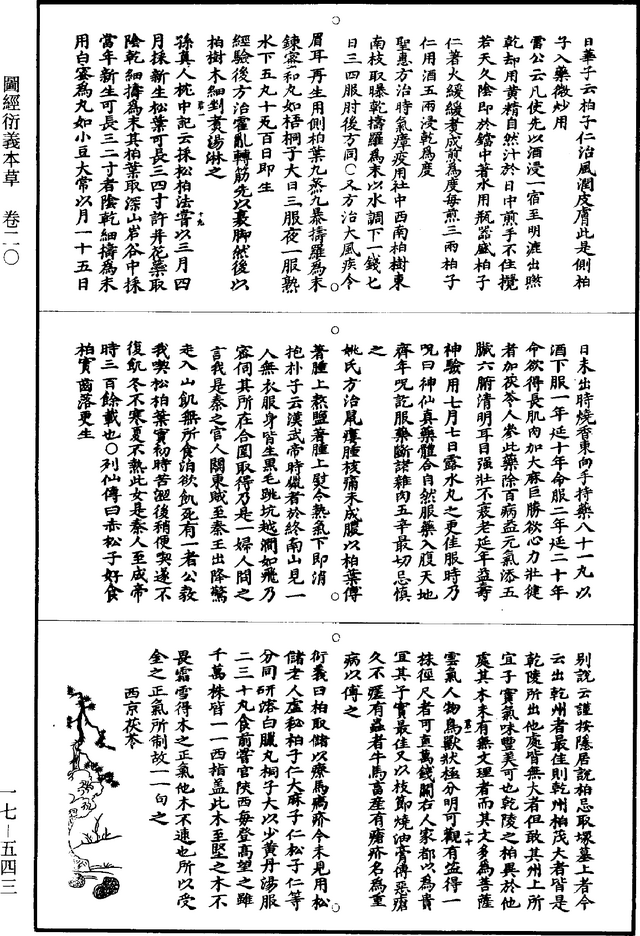 圖經衍義本草　卷二〇
日華子云柏子仁治風潤皮膚此是側柏
子入藥微炒用
雷公云凡使先以酒浸一宿至明漉出曬
乾却用黃精自然汁於日中煎手不住攪
若天久陰即於鐺中著水用瓶器盛柏子
仁著火緩緩煑成煎為度每煎三兩柏子
仁用酒五兩浸乾為度
聖惠方治時氣瘴疫用社中西南柏樹東
南枝取曝乾擣羅為末以水調下一錢匕
日三四服肘後方同〇又方治大風疾令
眉耳再生用側柏葉九蒸九暴擣羅為末
鍊蜜和丸如梧桐子大日三服夜一服熟
水下五丸十丸百日即生
經驗後方治霍亂轉筋先以裹脚然後以
柏樹木細剉煑湯淋之
孫真人枕中記云採松柏法嘗以三月四
月採新生松葉可長三四寸許并花蘂取
陰乾細擣為末其柏葉取深山岩谷中採
當年新生可長二三寸者陰乾細擣為末
用白蜜為丸如小豆大常以月一十五日
日未出時燒香東向手持藥八十一丸以
酒下服一年延十年命服二年延二十年
命欲得長肌肉加大麻巨勝欲心力壯健
者加茯苓人參此藥除百病益元氣添五
臟六腑清明耳目強壯不衰老延年益壽
神驗用七月七日露水丸之更佳服時乃
呪曰神仙真藥體合自然服藥入腹天地
齊年呪訖服藥斷諸雜肉五辛最切忌慎
之
姚氏方治鼠瘻腫核痛未成膿以柏葉傅
著腫上熬鹽著腫上熨令熱氣下即消
抱朴子云漢武帝時獵者於終南山見一
人無衣服身皆生黑毛跳坑越澗如飛乃
密伺其所在合圍取得乃是一婦人問之
言我是秦之官人關東賊至秦王出降驚
走入山飢無所食洎欲飢死有一老公教
我喫松柏葉實初時苦澀後稍便喫遂不
復飢冬不寒夏不熱此女是秦人至成帝
時三百餘載也〇列仙傳曰赤松子好食
柏實齒落更生
別說云謹按隱居說柏忌取塚墓上者今
云出乾州者最佳則乾州柏茂大者皆是
乾陵所出他處皆無大者但取其州上所
宜子實氣味豐美可也乾陵之柏異於他
處其木未有無文理者而其文多為菩薩
雲氣人物鳥獸狀極分明可觀有盜得一
株徑尺者可直萬錢關右人家都以為貴
宜其子實最佳又以枝節燒油膏傅惡瘡
久不瘥有蟲者牛馬畜產有瘡疥名為重
病以傅之
衍義曰柏取儲以療馬瘑疥今未見用松
儲老人虛秘柏子仁大麻子仁松子仁等
分同研溶白臘丸桐子大以少黃丹湯服
二三十丸食前嘗官陜西每登高望之雖
千萬株皆一一西指蓋此木至堅之木不
畏霜雪得木之正氣他木不逮也所以受
金之正氣所制故一一向之
西京茯苓
一七—五四三